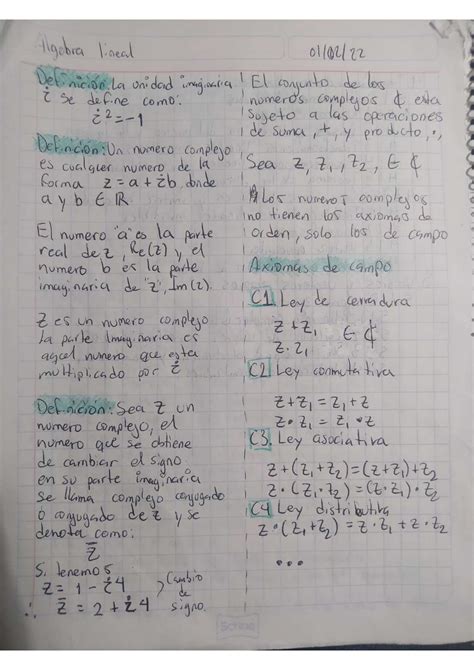 Algebra lineal
01/02/22
Definición: La unidad imaginaria
i se define como:
i² = -1
Definición: Un numero complejo
es cualquier numero de la
forma z = a + ib, donde
a y b ∈ ℝ
El numero "a" es la parte
real de z, Re(z) y el
numero b es la parte
imaginaria de "z", Im(z).
Z es un numero complejo
la parte Imaginaria es
aquel numero que esta
multiplicado por i
Definición: Sea Z un
numero complejo, el
numero que se obtiene
de cambiar el signo
en su parte imaginaria
se llama complejo conjugado
o conjugado de z y se
denota como:
z̄
Si tenemos
z = 1 - i4
∴ z̄ = 2 + i4
Cambio
de
signo.
El conjunto de los
numeros complejos ₵ esta
sujeto a las operaciones
de suma, +, y producto, ·,
Sea z, z₁, z₂, ∈ ₵
Los numeros complejos
no tienen los axiomas de
orden, solo los de campo
Axiomas de campo
C1 Ley de cerradura
z + z₁
z · z₁ ∈ ₵
C2 Ley conmutativa
z + z₁ = z₁ + z
z · z₁ = z₁ · z
C3. Ley asociativa
z + (z₁ + z₂) = (z + z₁) + z₂
z · (z₁ · z₂) = (z · z₁) · z₂
C4 Ley distributiva
z · (z₁ + z₂) = z · z₁ + z · z₂
...
Scribe